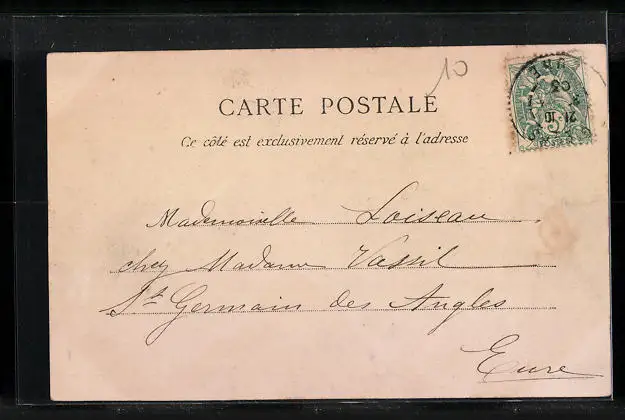 10
CARTE POSTALE
Ce côté est exclusivement réservé à l'adresse
Mademoiselle Loiseau
chez Madame Vassil
St Germain des Angles
Eure